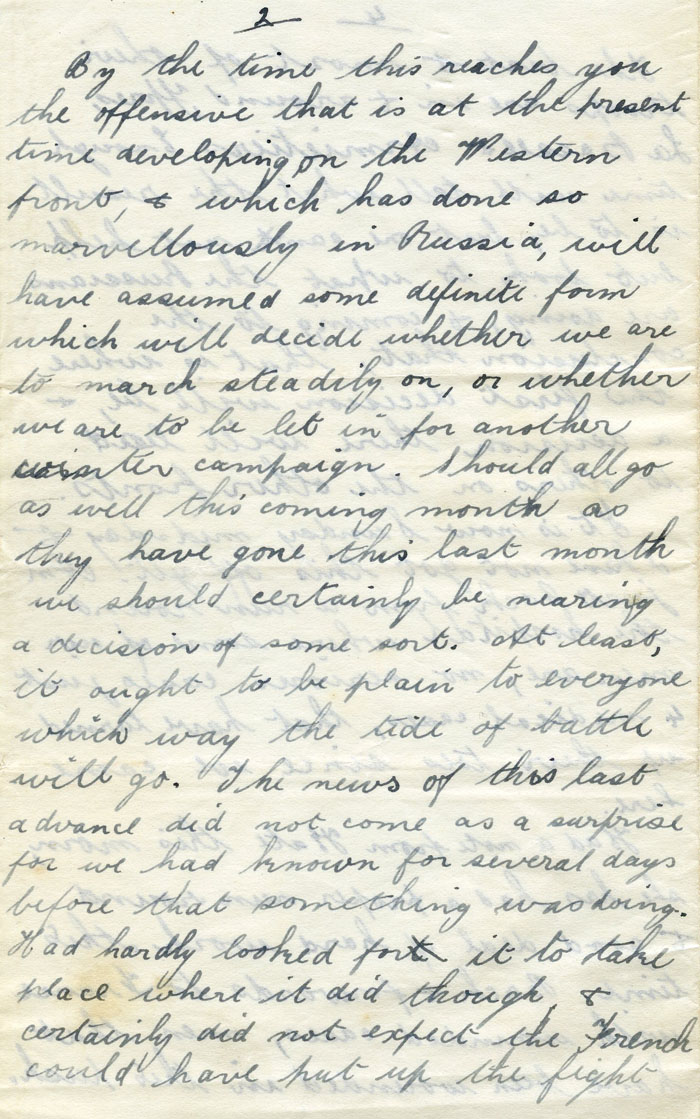 2
By the time this reaches you
the offensive that is at the present
time developing on the Western
front, & which has done so
marvellously in Russia, will
have assumed some definite form
which will decide whether we are
to march steadily on, or whether
we are to be let in for another
winter campaign. Should all go
as well this coming month as
they have gone this last month
we should certainly be nearing
a decision of some sort. At least,
it ought to be plain to everyone
which way the tide of battle
will go. The news of this last
advance did not come as a surprise
for we had known for several days
before that something was doing.
Had hardly looked for it to take
place where it did though, &
certainly did not expect the French
could have put up the fight